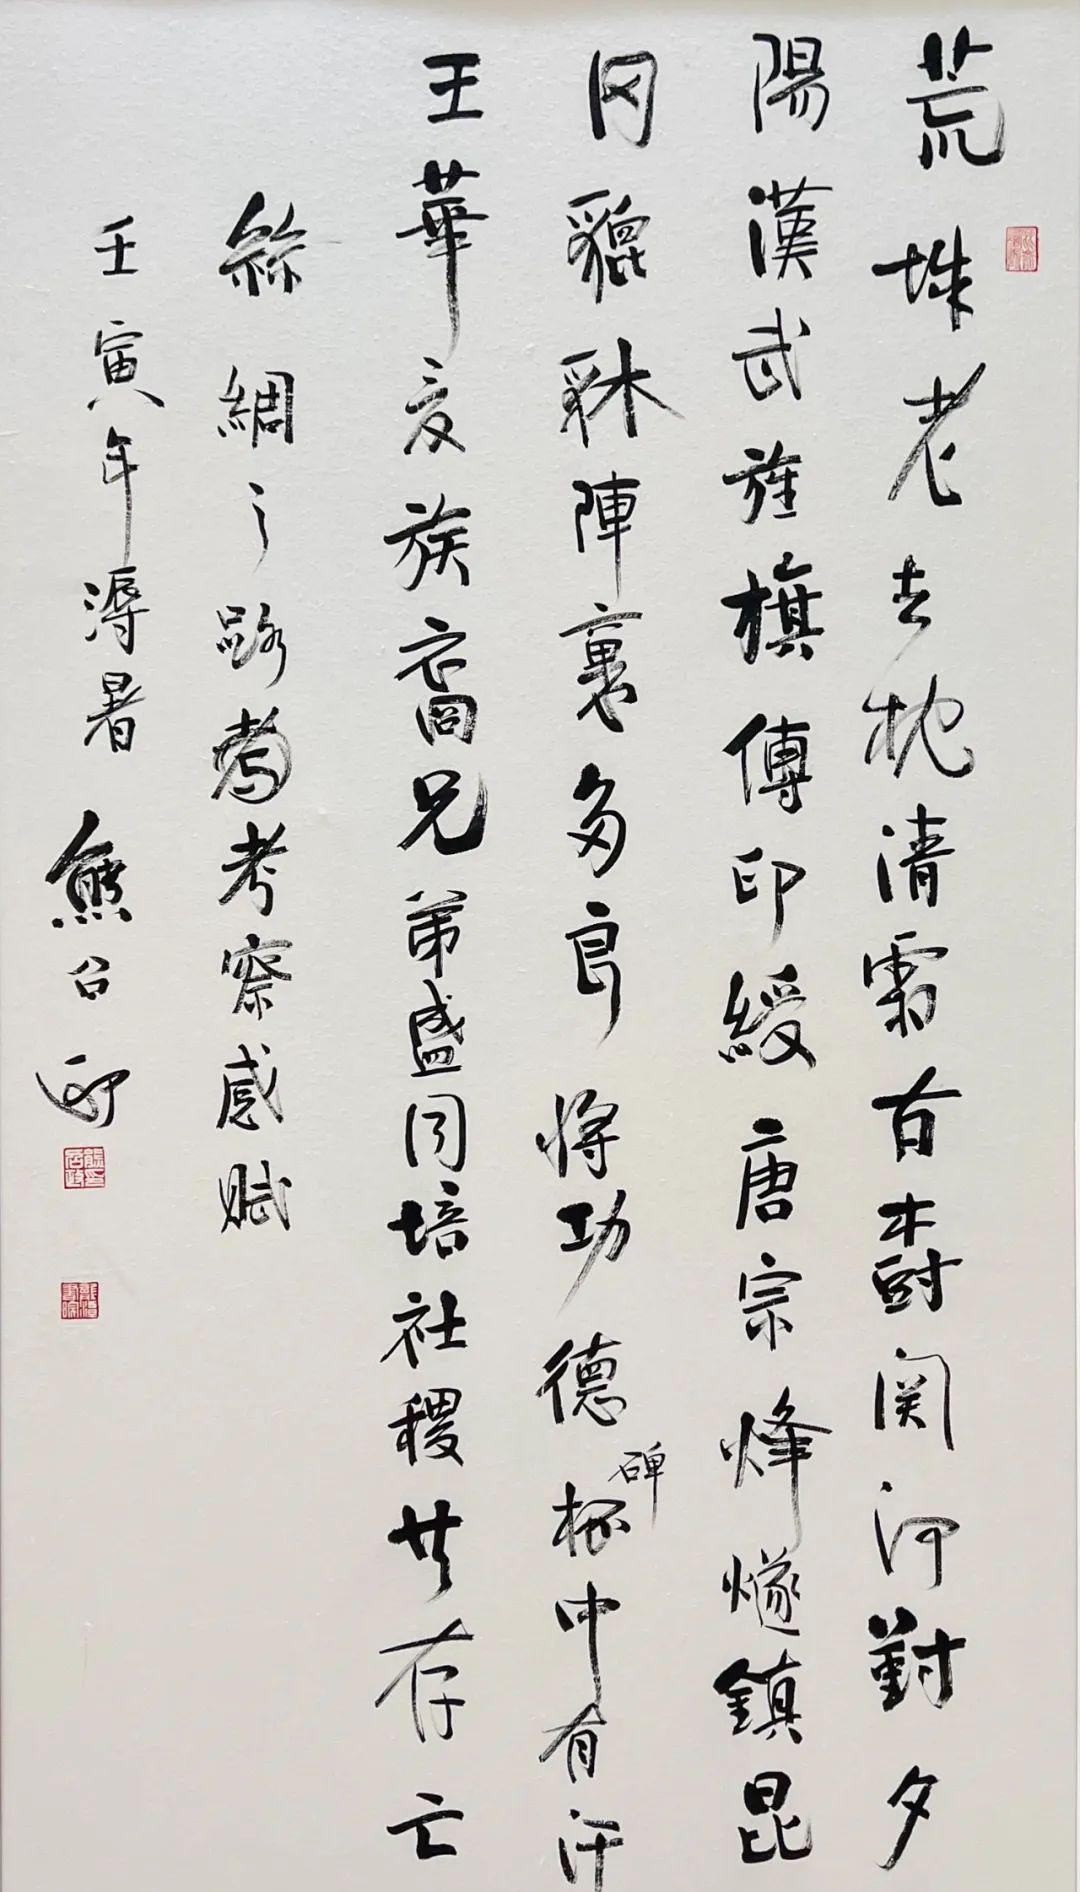 荒城老去枕清霜古樹関河對夕
陽漢武旌旗傳印綬唐宗烽燧鎮昆
冈貔貅陣裏多良將功德碑中有汗
王華夏族裔兄弟盛同培社稷共存亡
絲綢之路考察感賦
壬寅年溽暑熊召政